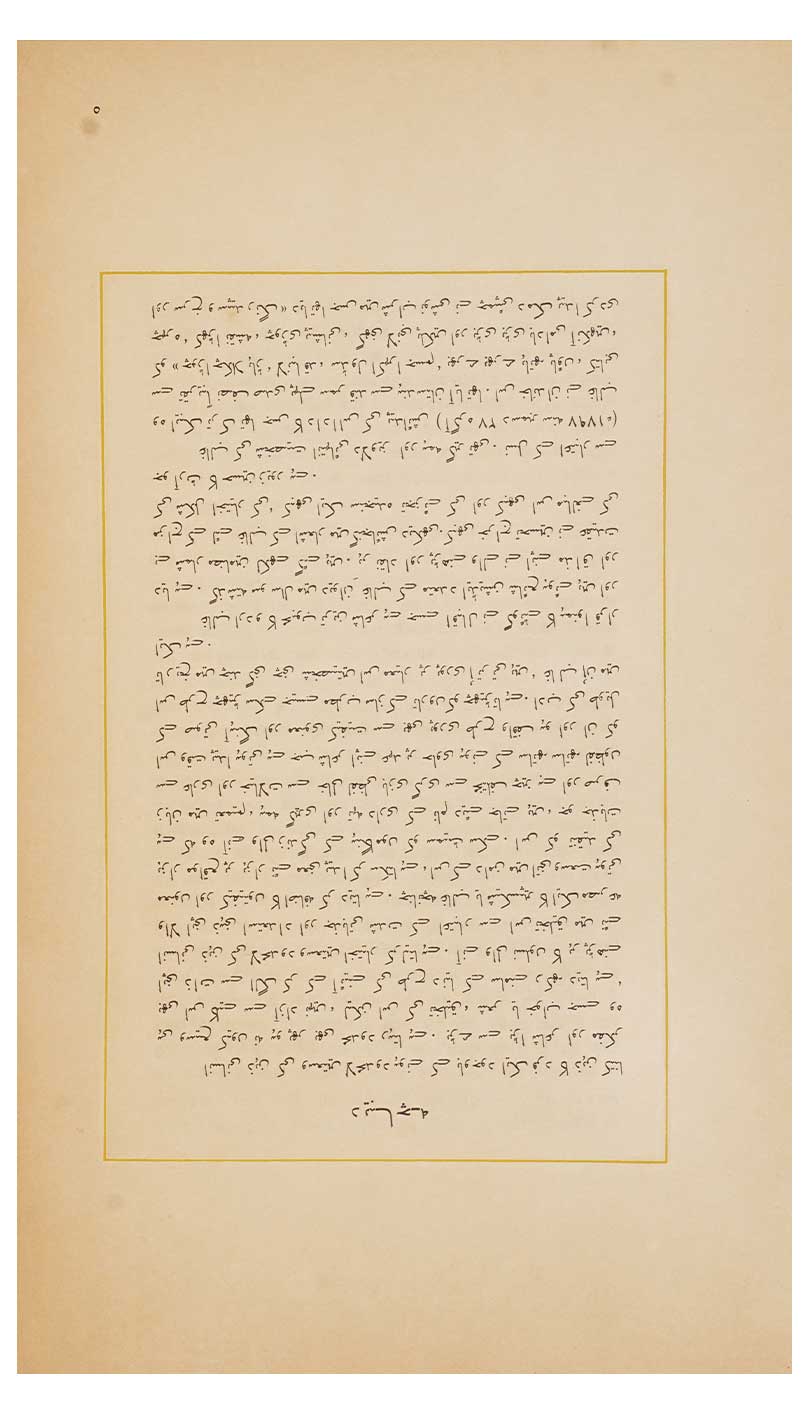 دیباچه
انسانی ذہن کی وسعتیں لامحدود ہونے کے باوجود ایک فرد کا ذہن کتنا
ہی وسیع کیوں نه ہو پھر بھی محدود رہتا ہے۔ بڑے سے بڑا شاعر اور مفکر
بھی اس کلیے سے آزاد نہیں، لیکن اس کی تخلیق، شعر یا خواب جسے وه
اپنی ذات سے الگ کر کے آئینے کی طرح دنیا کے سامنے رکھ دیتا ہے،
انسانی ذہن کی لامحدود وسعتیں اختیار کرلیتا ہے۔ آنے والی نسلوں کا ہر پڑھنے
والا اپنی ذہنی استعداد اور جذباتی شدت کے اعتبار سے اس تخلیق میں نئے
معنوں اور کیفیتوں کا اضافه کر دیتا ہے۔ چنانچه غالب یا شیکسپیر کا ایک مصرعه
ہزار مواقع پر ہزار نئے معنی پیدا کر سکتا ہے، اس کے دامن میں اتنی وسعت ہوتی
ہے که وه آنے والی زندگی کے ہنگاموں کو سمیٹ سکے۔ اس کو تنقید کی
زبان میں تعمیم، ہمه گیری اور تہه داری کے نام دیئے جاتے ہیں، جو جذبات
سے عاری اور خیالات سے خالی لفظی بازی گری سے مختلف چیز ہے اور صرف
اس وقت پیدا ہوتی ہے جب شاعر اپنے عہد پر حاوی ہونے کے ساتھ ساتھ لفظوں
کے صوتی آہنگ اور معنوی کیفیت سے بھی پوری طرح واقف ہو اور ان کو
اس طرح چھیڑ سکے جیسے مطرب ساز کے تاروں کو چھیڑتا ہے۔ ادب کی طویل
تاریخ میں چند گنی چنی شخصیتیں اس معیار پر پوری اُترتی ہیں، غالب اُن میں
ایک ہے۔
غالب اردو کا محبوب ترین شاعر ہے جسے اقبال نے گوئٹے کا ہمنوا قرار
دیا ہے۔ گذشته سو سال میں دیوانِ غالب کے متعدد ایڈیشن شائع ہوئے ہیں اور
بے شمار مضامین لکھے گئے ہیں۔ ہر نقاد اور پڑھنے والے نے اپنے مذاق اور
مزاج کے لئے غالب کے اشعار میں گنجائش دیکھی۔ کبھی خراج تحسین نے عقیدت
کی شکل اختیار کی، کبھی ایک سنجیده تجزئے کی اور کبھی اس مبالغے کی
جو آرٹ کا حسین زیور ہے۔
غالب کی شخصیت انتہائی دلاویز اور ہمه گیر تھی۔ نسل کے اعتبار سے
وه ایبک ترک تھا جس کا دادا اس کی پیدائش (آگره ۲۷ دسمبر سنه ۱۷۹۷ء)
سے تقریباً نصف صدی پہلے سمر قند سے ہندستان آیا تھا۔ اس خاندان نے غالب
کو «چوڑا چکلا ہاڑ، لانبا قد، سڈول اکہرا جسم، بھرے بھرے ہاتھ پاؤں، کتابی
چہره، کھڑا نقشه، چوڑی پیشانی، گھنی لانبی پلکیں اور بڑی بڑی بادامی آنکھیں،
اور سرخ و سپید رنگ» دیا تھا جس میں شراب نوشی نے چمپئی دمک پیدا کردی
۵